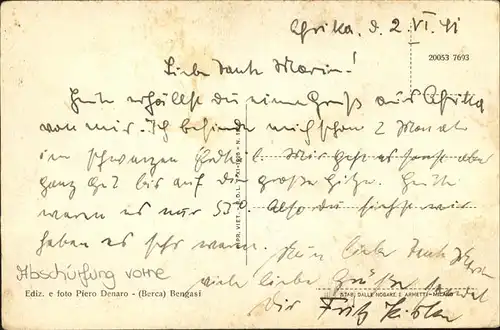 Afrika. d. 2. VI. 41
20053 7693
Liebe Tante Marie!
Heute erhällst du einen Gruß aus Afrika
von mir. Ich befinde mich schon 2 Monate
im schwarzen Erdteil. Mir geht es sonst aber
ganz gut bis auf die große Hitze. Heute
waren es nur 55°. Also du siehst wir
haben es sehr warm. Nun liebe Tante Marie
viele liebe Grüße sendet
Dir Fritz
Abschürfung vorne
Ediz. e foto Piero Denaro - (Berca) Bengasi
STAB. DALLE NOGARE E ARMETTI - MILANO